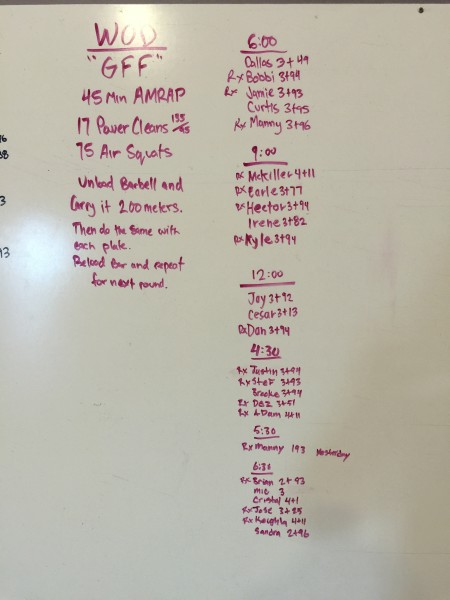 WOD
"GFF"
45 Min AMRAP
17 Power Cleans 135/95
75 Air Squats
Unload Barbell and
Carry it 200 meters.
Then do the same with
each plate.
Reload Bar and repeat
for next round.
6:00
Dallas 3+49
Rx Bobbi 3+94
Rx Jamie 3+93
Curtis 3+95
Rx Manny 3+96
9:00
Rx McKiller 4+11
Rx Earle 3+77
Rx Hector 3+94
Irene 3+82
Rx Kyle 3+94
12:00
Jay 3+92
Cesar 3+13
Rx Dan 3+94
4:30
Rx Justin 3+94
Rx Stef 3+93
Brooke 3+94
Rx Dez 3+51
Rx Adam 4+11
5:30
Rx Manny 193 Yesterday
6:30
Rx Brian 2+93
mic 3
Cristal 4+1
Rx Jose 3+85
Rx 4+11
Sandra 2+96